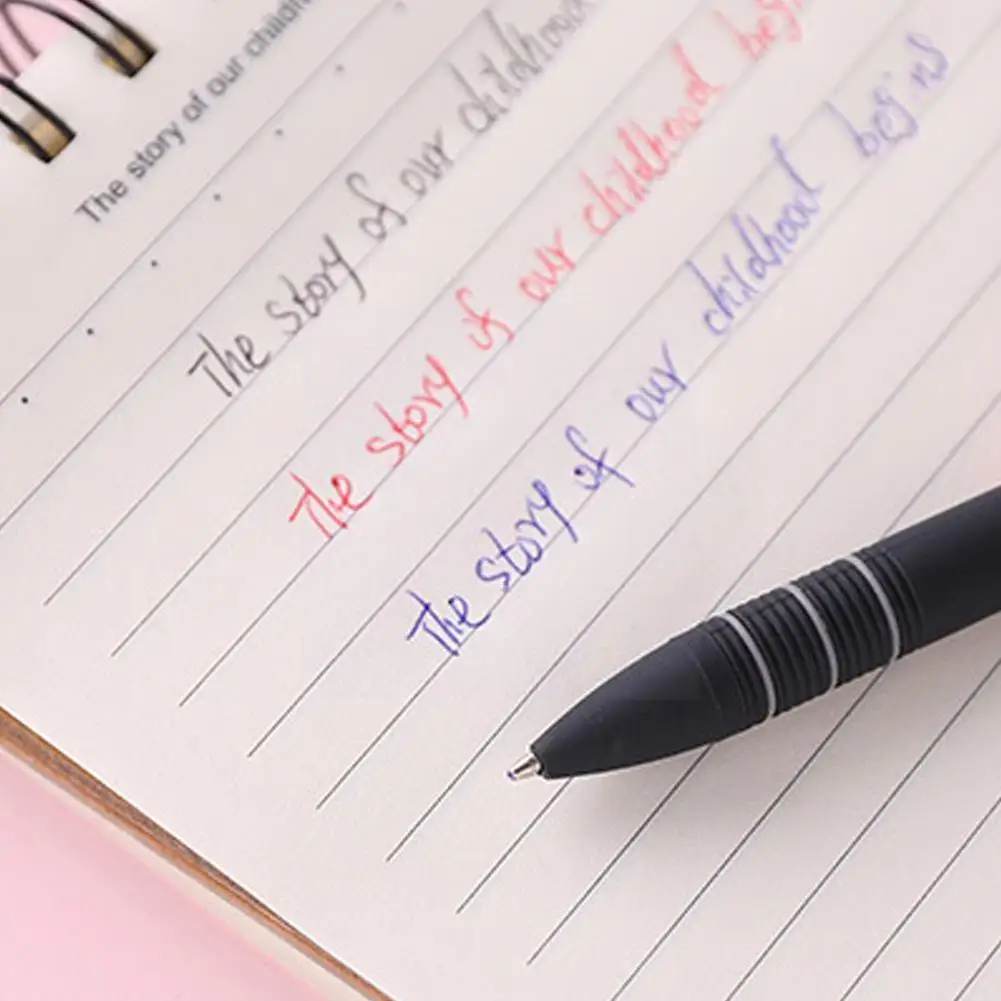 The story of our childh
The story of our childhood
The story of our childhood beg
The story of our childhood begins